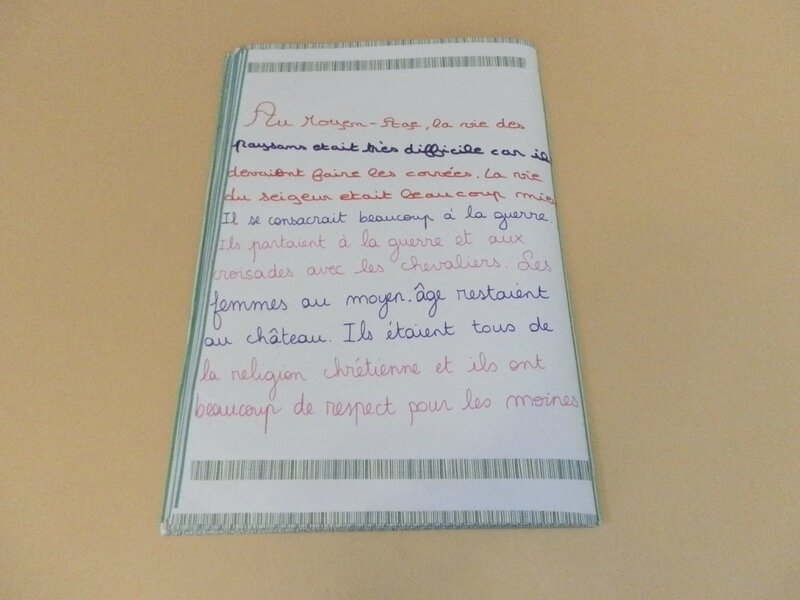 Au Moyen-Age, la vie des
paysans etait très difficile car il
devaient faire les corvées. La vie
du seigeur etait beaucoup mie
Il se consacrait beaucoup à la guerre.
Ils partaient à la guerre et aux
croisades avec les chevaliers. Les
femmes au moyen-âge restaient
au château. Ils étaient tous de
la religion chrétienne et ils ont
beaucoup de respect pour les moines